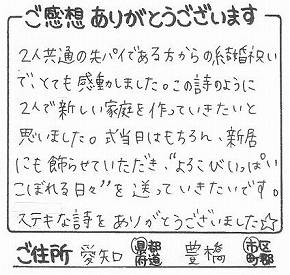 ご感想ありがとうございます
2人共通の先パイである方からの結婚祝い
で、とても感動しました。この詩のように
2人で新しい家庭を作っていきたいと
思いました。式当日はもちろん、新居
にも飾らせていただき、“よろこびいっぱい
こぼれる日々”を送っていきたいです。
ステキな詩をありがとうございました☆
ご住所 愛知 都道府県 豊橋 市区町郡